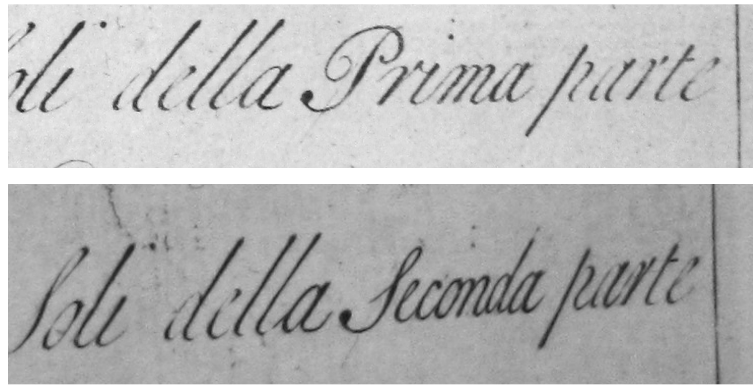 Soli della Prima parte
Soli della Seconda parte